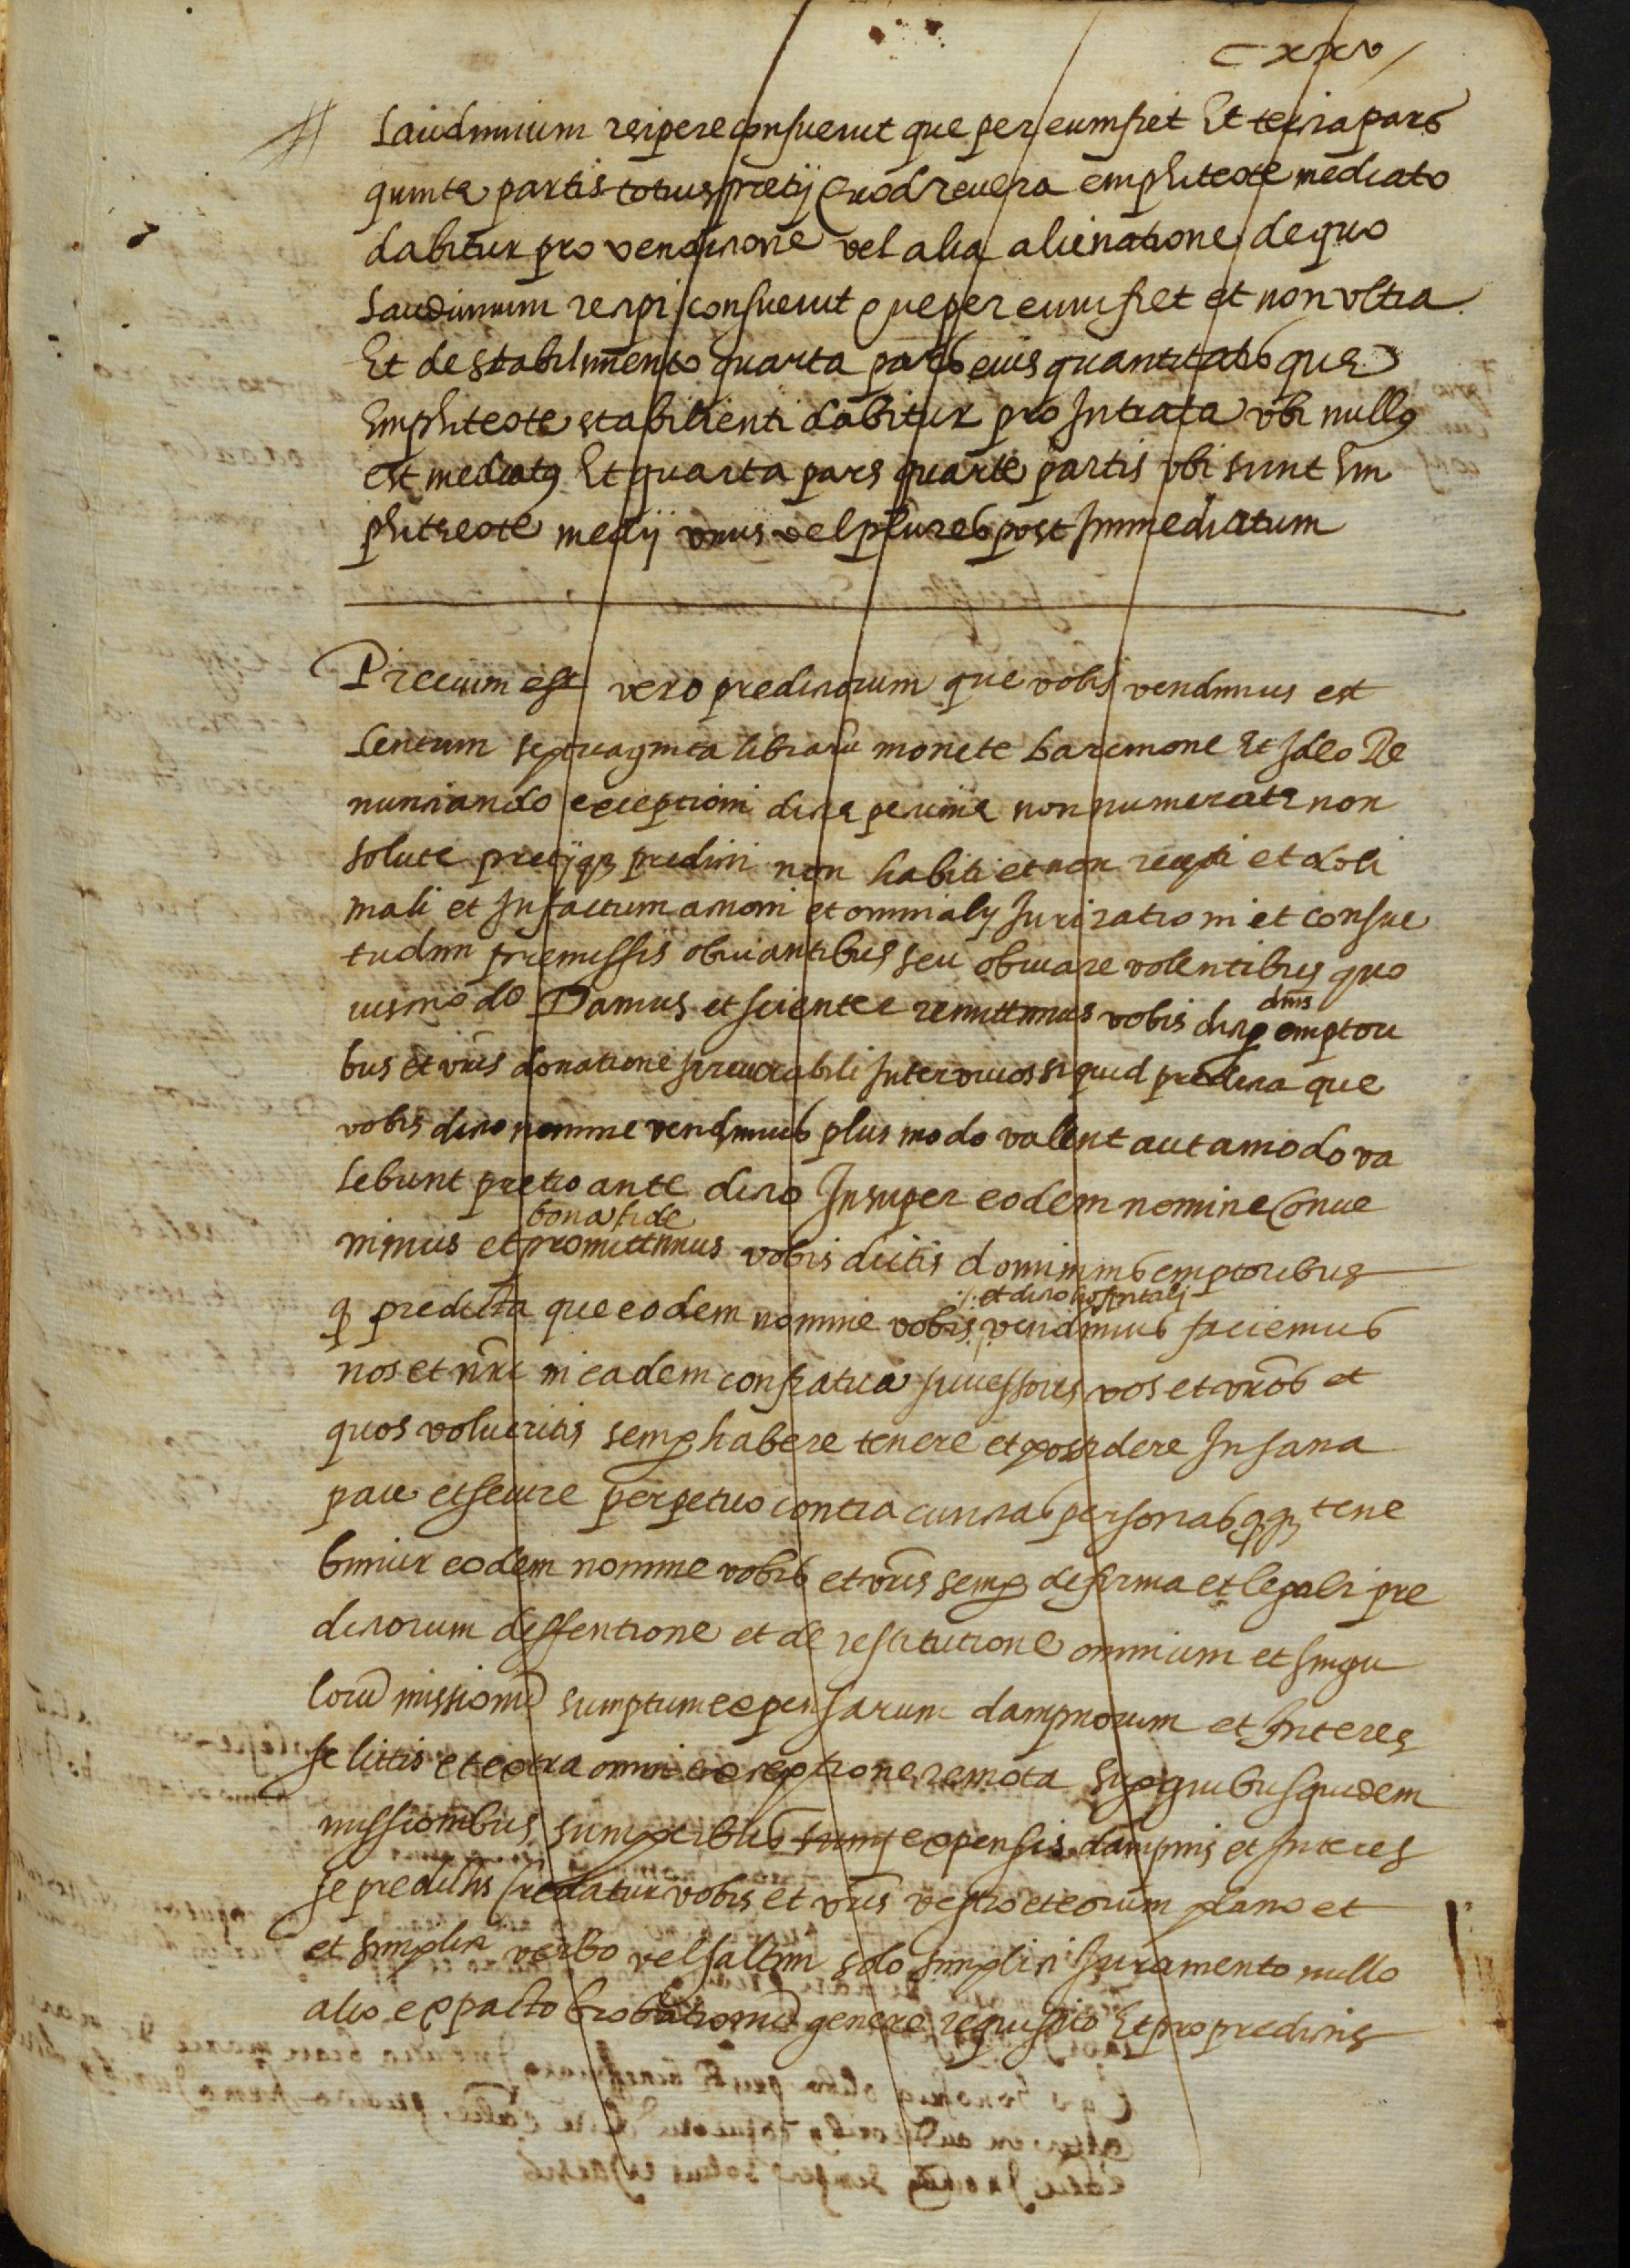 cxxv
Laudimium recipere consuevit que per eum fiet Et tercia pars
quinte partis totius pretij Quod revera emphiteote mediato
dabitur pro venditione vel alia alienatione de quo
Laudimium recipi consuevit que per eum fiet et non ultra
Et de stabilimento quarta pars eius quantitatis que
Emphiteote stabilienti dabitur pro Intrata ubi nullus
est mediatus Et quarta pars quarte partis ubi sunt Em
phiteote medij unus vel plures post Immediatum
Precium est vero predictorum que vobis vendimus est
Centum septuaginta librarum monete barcinone Et Ideo Re
nunciando exceptioni dicte pecunie non numerate non
solute pretijque predicti non habiti et non recepti et doli
mali et In factum actioni et omni alij Juri rationi et consue
tudini premissis obviantibus seu obviare volentibus quo
dnis
vismodo Damus et scienter remittimus vobis dictis emptori
bus et vris donatione Irrevocabili Inter vivos si quid predicta que
vobis dicto nomine vendimus plus modo valent aut amodo va
lebunt pretio ante dicto Insuper eodem nomine Conve
bona fide
nimus et promittimus vobis dictis dominis emptoribus
et dicto hospitali
q predicta que eodem nomine vobis vendimus faciemus
nos et nri in eadem confratria successores vos et vros et
quos volueritis semp habere tenere et possidere In sana
pace et secure perpetuo contra cunctas personas qq tene
bimur eodem nomine vobis et vris semp de firma et legali pre
dictorum deffentione et de restitutione omnium et singu
lorum missionum sumptum expensarum dampnorum et Interes
se littis et extra omni exceptione remota Sup quibusquidem
missionibus sumptibus sumt expensis dampnis et Interes
se predictis Credatur vobis et vris vestro et eorum plano et
et simplici verbo vel saltim solo simplici Juramento nullo
alio expacto probationum genere requisito Et pro predictis